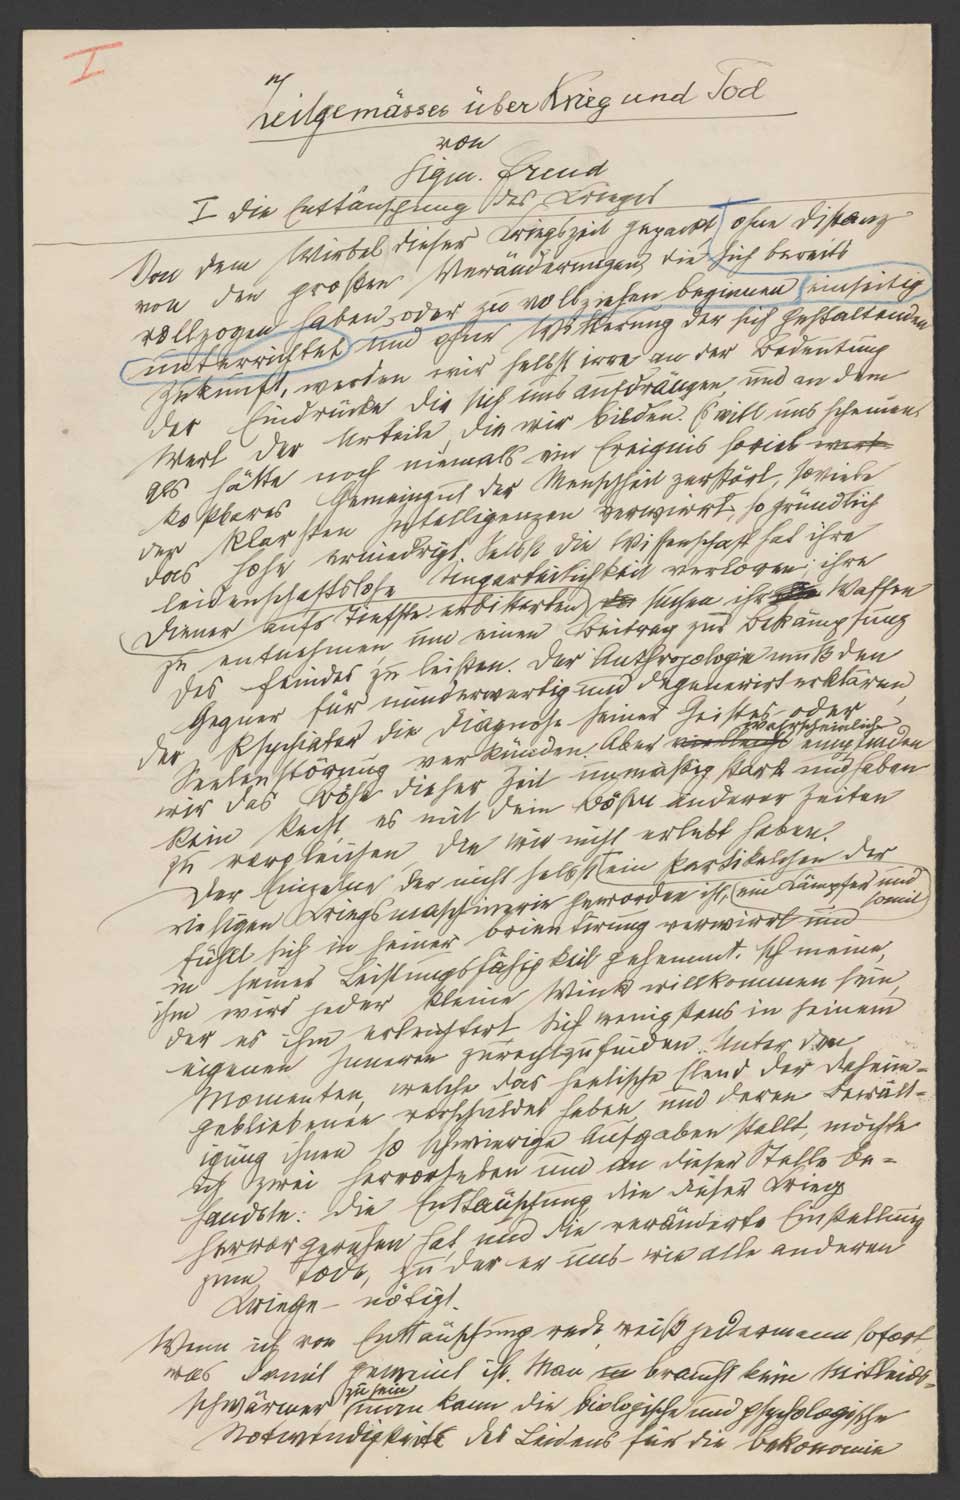 I
Zeitgemässes über Krieg und Tod
von
Sigm. Freud
I Die Enttäuschung des Krieges
Von dem Wirbel dieser Kriegszeit gepackt, ohne Distanz
von den großen Veränderungen, die sich bereits
vollzogen haben, oder zu vollziehen beginnen, einseitig
unterrichtet und ohne Witterung der sich gestaltenden
Zukunft, werden wir selbst irre an der Bedeutung
der Eindrücke die sich uns aufdrängen, und an dem
Wert der Urteile, die wir bilden. Es will uns scheinen,
als hätte noch niemals ein Ereignis soviel
kostbares Gemeingut der Menschheit zerstört, soviele
der klarsten Intelligenzen verwirrt, so gründlich
das Hohe erniedrigt. Selbst die Wissenschaft hat ihre
leidenschaftslose Unparteilichkeit verloren; ihre
Diener aufs Tiefste erbitterten suchen ihr Waffen
zu entnehmen, um einen Beitrag zur Bekämpfung
des Feindes zu leisten. Der Anthropologe muß den
Gegner für minderwertig und degenerirt erklären,
der Psychiater die Diagnose seiner Geistes oder
Seelenstörung verkünden. Aber vielleicht wahrscheinlich empfinden
wir das Böse dieser Zeit unmäßig stark und haben
kein Recht, es mit dem Bösen anderer Zeiten
zu vergleichen, die wir nicht erlebt haben.
Der Einzelne der nicht selbst ein Partikelchen der
riesigen Kriegsmaschinerie geworden ist, ein Kämpfer und somit
fühlt sich in seiner Orientirung verwirrt und
in seiner Leistungsfähigkeit gehemmt. Ich meine,
ihm wird jeder kleine Wink willkommen sein,
der es ihm erleichtert sich wenigstens in seinem
eigenen Inneren zurechtzufinden. Unter den
Momenten, welche das seelische Elend der Daheim-
gebliebenen verschuldet haben, und deren Bewält-
igung ihnen so schwierige Aufgaben stellt, möchte
ich zwei hervorheben und an dieser Stelle be-
handeln: Die Enttäuschung die dieser Krieg
hervorgerufen hat, und die veränderte Einstellung
zum Tode, zu der er uns – wie alle anderen
Kriege – nötigt.
Wenn ich von Enttäuschung rede, weiß jedermann sofort,
was damit gemeint ist. Man braucht kein Mitleids-
schwärmer zu sein, man kann die biologische und psychologische
Notwendigkeit des Leidens für die Oekonomie